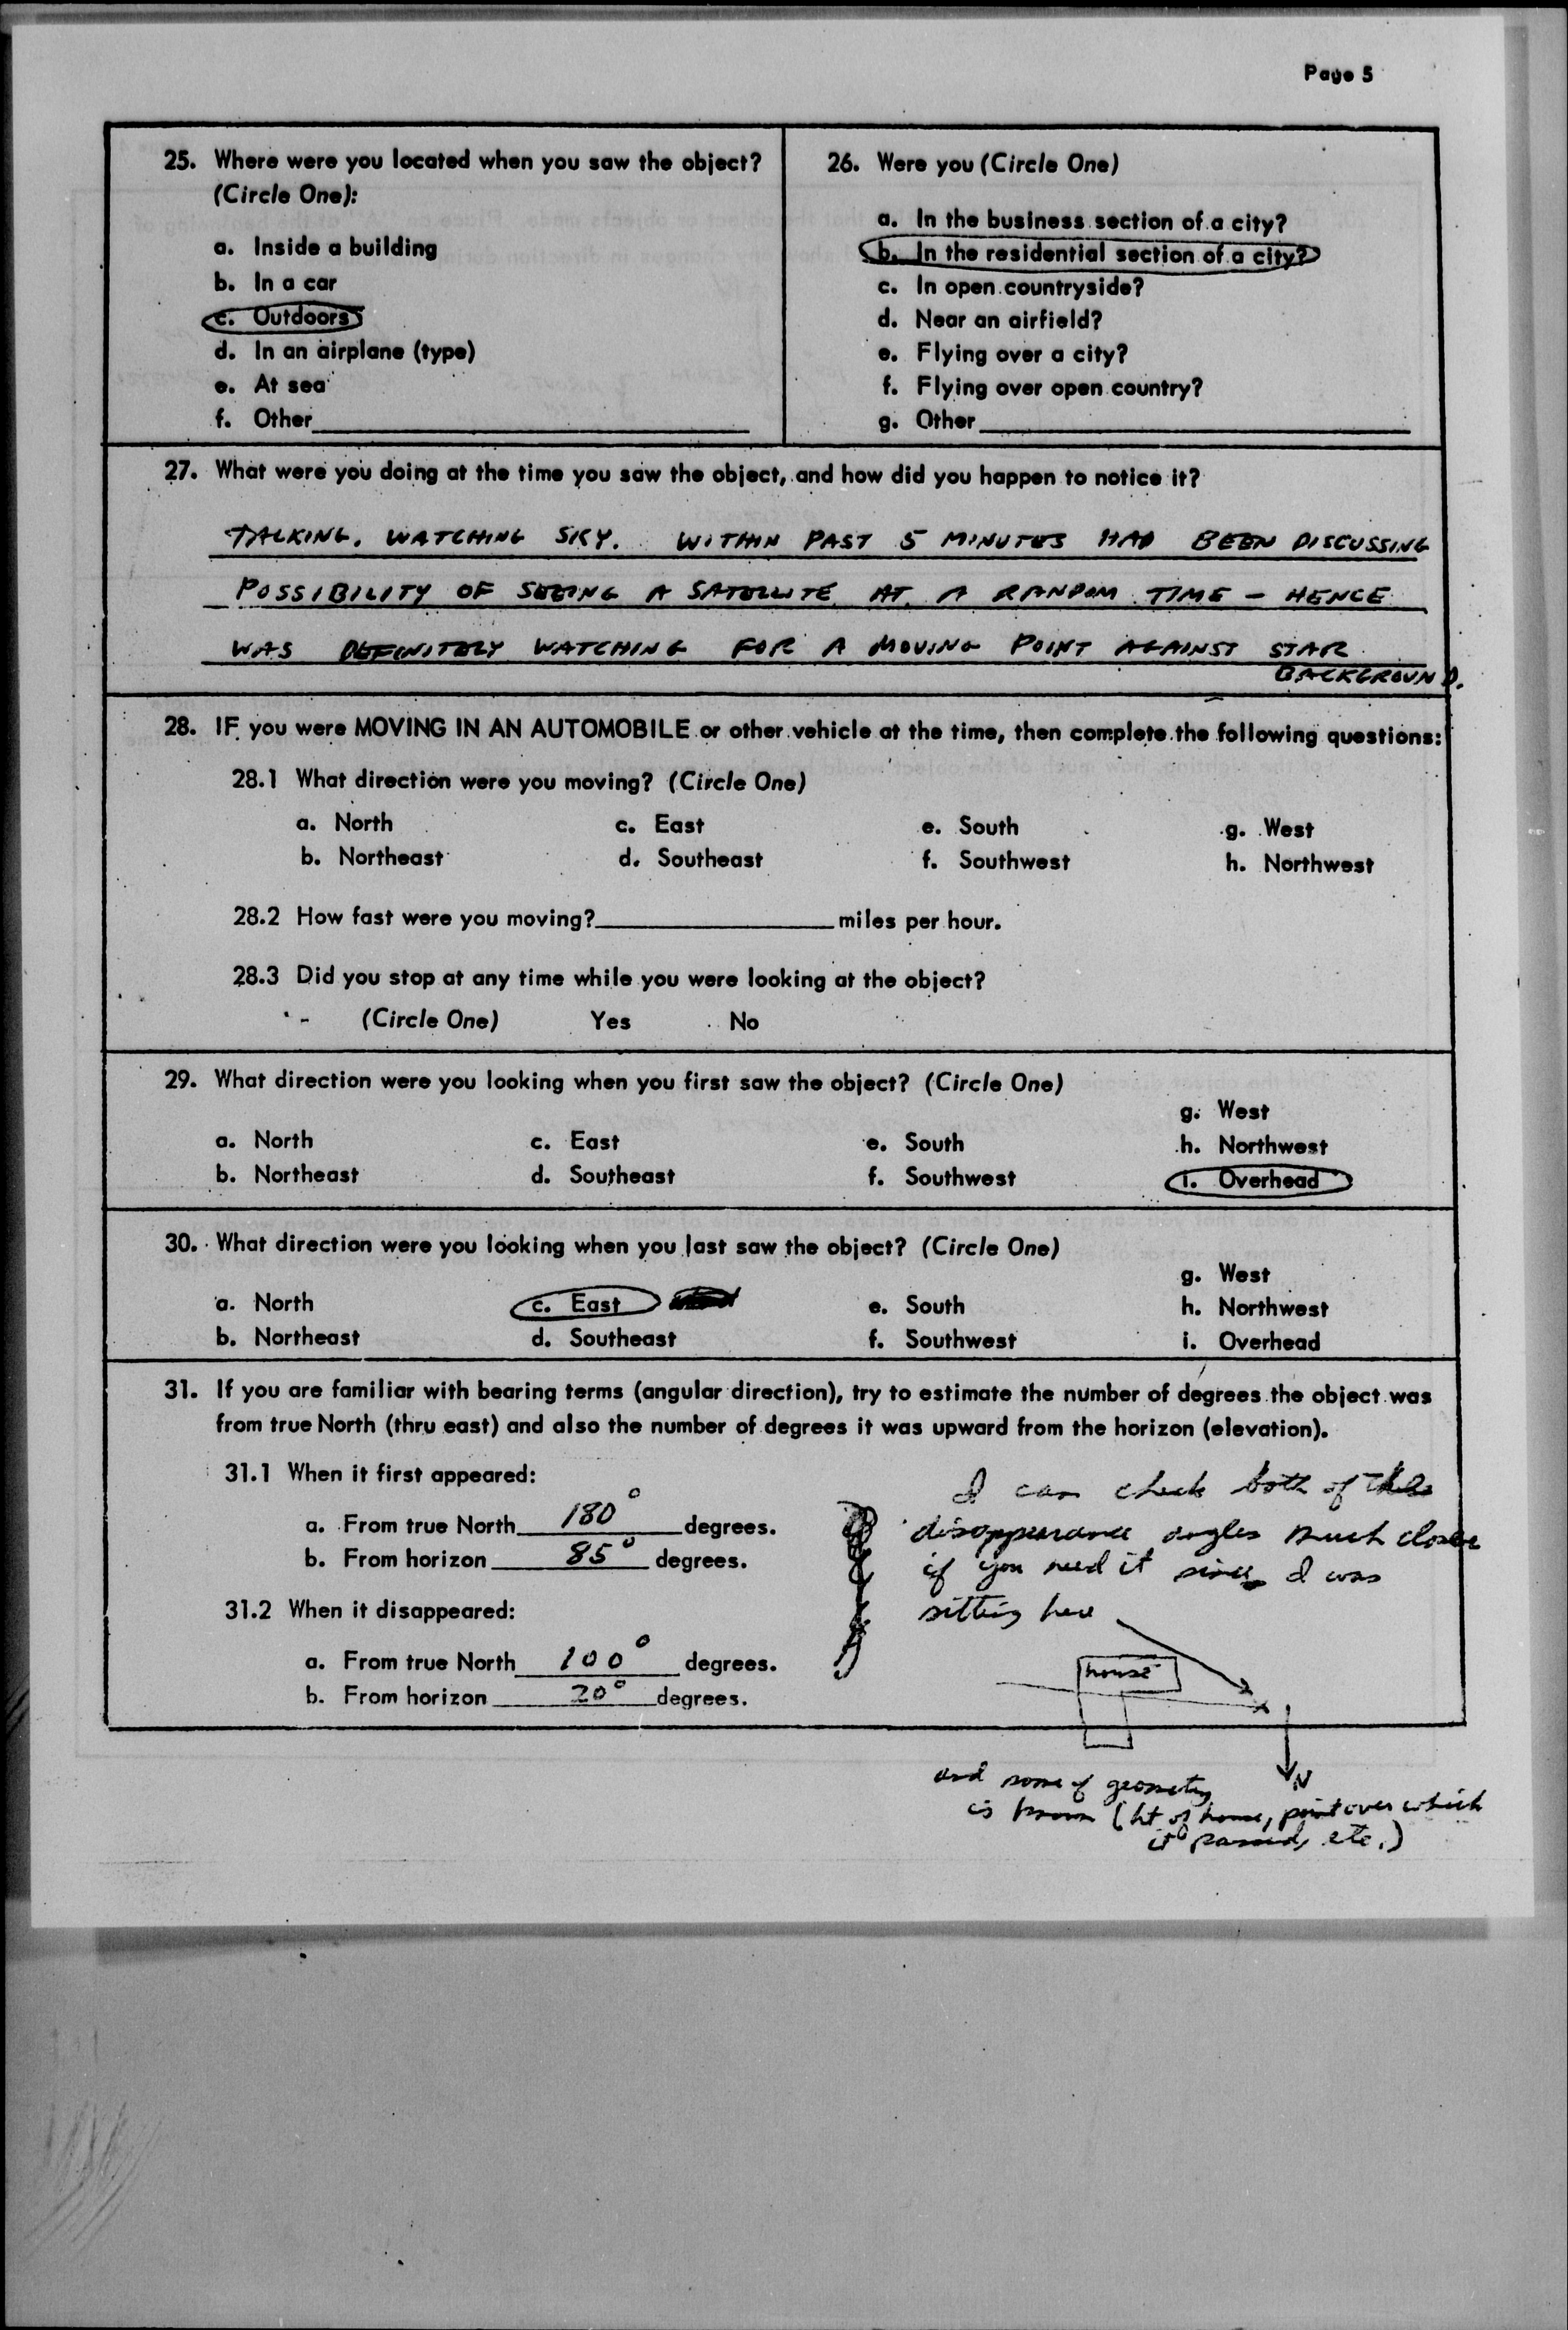 Page 5
25. Where were you located when you saw the object?
(Circle One):
a. Inside a building
b. In a car
c. Outdoors
d. In an airplane (type)
e. At sea
f. Other
26. Were you (Circle One)
a. In the business section of a city?
b. In the residential section of a city?
c. In open countryside?
d. Near an airfield?
e. Flying over a city?
f. Flying over open country?
g. Other
27. What were you doing at the time you saw the object, and how did you happen to notice it?
TALKING. WATCHING SKY. WITHIN PAST 5 MINUTES HAD BEEN DISCUSSING
POSSIBILITY OF SEEING A SATELLITE AT A RANDOM TIME - HENCE
WAS DEFINITELY WATCHING FOR A MOVING POINT AGAINST STAR
BACKGROUND.
28. IF you were MOVING IN AN AUTOMOBILE or other vehicle at the time, then complete the following questions:
28.1 What direction were you moving? (Circle One)
a. North c. East e. South g. West
b. Northeast d. Southeast f. Southwest h. Northwest
28.2 How fast were you moving? miles per hour.
28.3 Did you stop at any time while you were looking at the object?
(Circle One) Yes No
29. What direction were you looking when you first saw the object? (Circle One)
g. West
a. North c. East e. South h. Northwest
b. Northeast d. Southeast f. Southwest i. Overhead
30. What direction were you looking when you last saw the object? (Circle One)
g. West
a. North c. East e. South h. Northwest
b. Northeast d. Southeast f. Southwest i. Overhead
31. If you are familiar with bearing terms (angular direction), try to estimate the number of degrees the object was
from true North (thru east) and also the number of degrees it was upward from the horizon (elevation).
31.1 When it first appeared:
a. From true North 180° degrees.
b. From horizon 85° degrees.
31.2 When it disappeared:
a. From true North 100° degrees.
b. From horizon 20° degrees.
I can check both of these
disappearance angles much closer
if you need it since I was
sitting here
house
N
and some of geometry
is known (ht of house, point over which
it passed, etc.)